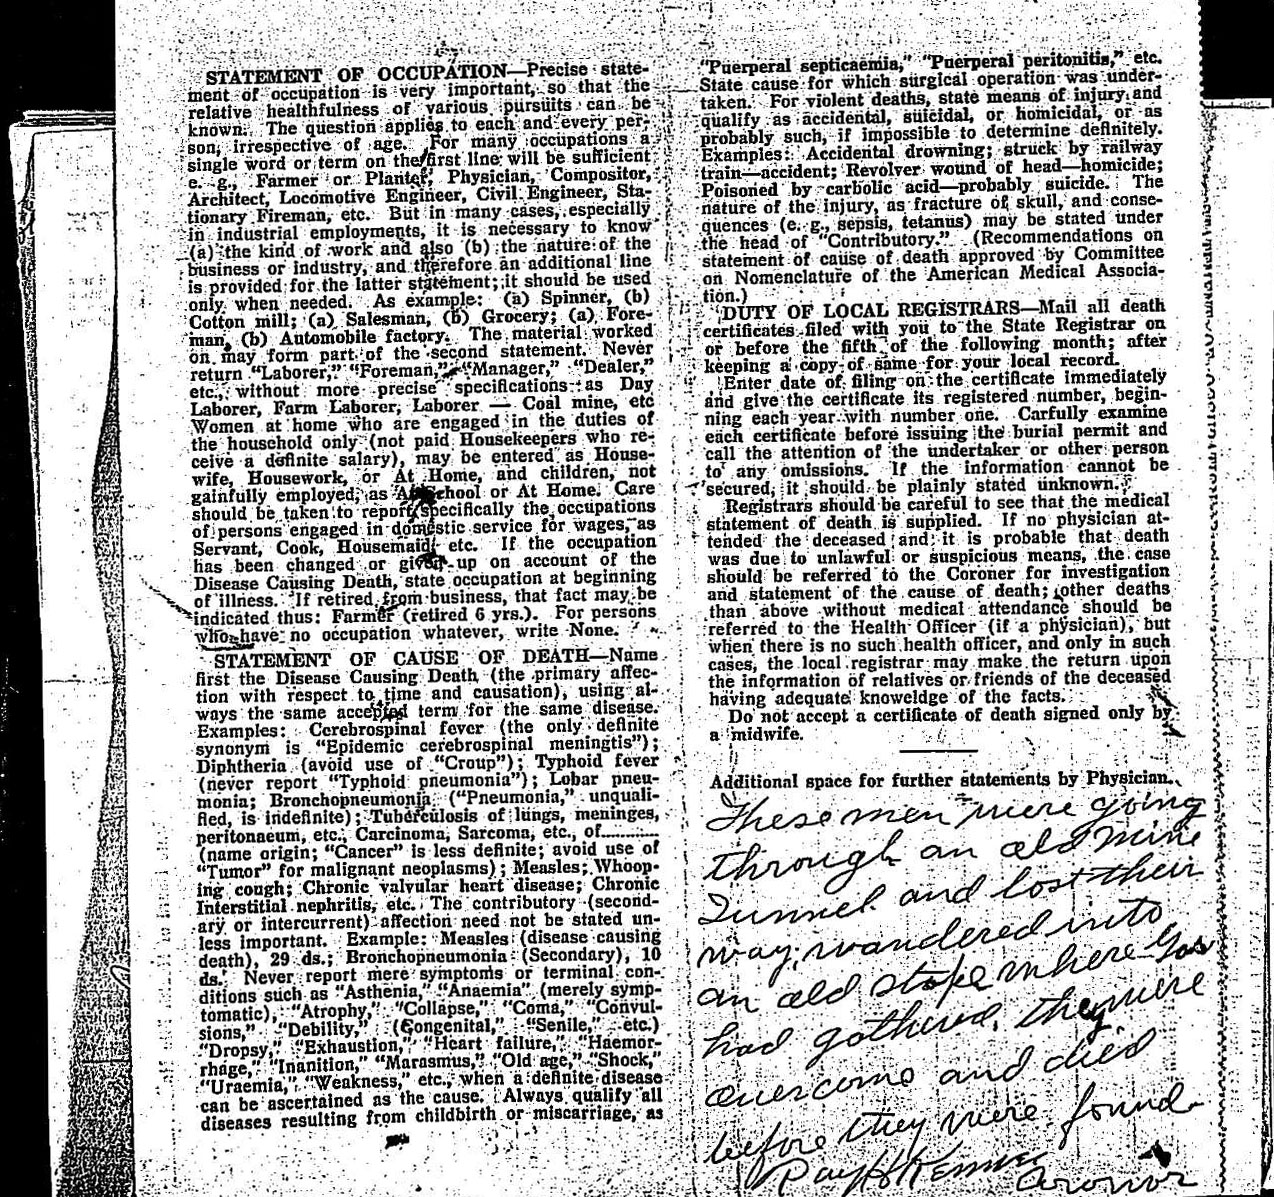 STATEMENT OF OCCUPATION—Precise state-
ment of occupation is very important, so that the
relative healthfulness of various pursuits can be
known. The question applies to each and every per-
son, irrespective of age. For many occupations a
single word or term on the first line will be sufficient
e. g., Farmer or Planter, Physician, Compositor,
Architect, Locomotive Engineer, Civil Engineer, Sta-
tionary Fireman, etc. But in many cases, especially
in industrial employments, it is necessary to know
(a) the kind of work and also (b) the nature of the
business or industry, and therefore an additional line
is provided for the latter statement; it should be used
only when needed. As example: (a) Spinner, (b)
Cotton mill; (a) Salesman, (b) Grocery; (a) Fore-
man, (b) Automobile factory. The material worked
on may form part of the second statement. Never
return "Laborer," "Foreman," "Manager," "Dealer,"
etc., without more precise specifications as Day
Laborer, Farm Laborer, Laborer — Coal mine, etc
Women at home who are engaged in the duties of
the household only (not paid Housekeepers who re-
ceive a definite salary), may be entered as House-
wife, Housework, or At Home, and children, not
gainfully employed, as At School or At Home. Care
should be taken to report specifically the occupations
of persons engaged in domestic service for wages, as
Servant, Cook, Housemaid, etc. If the occupation
has been changed or given up on account of the
Disease Causing Death, state occupation at beginning
of illness. If retired from business, that fact may be
indicated thus: Farmer (retired 6 yrs.). For persons
who have no occupation whatever, write None.
STATEMENT OF CAUSE OF DEATH—Name
first the Disease Causing Death (the primary affec-
tion with respect to time and causation), using al-
ways the same accepted term for the same disease.
Examples: Cerebrospinal fever (the only definite
synonym is "Epidemic cerebrospinal meningtis");
Diphtheria (avoid use of "Croup"); Typhoid fever
(never report "Typhoid pneumonia"); Lobar pneu-
monia; Bronchopneumonia ("Pneumonia," unquali-
fied, is indefinite); Tuberculosis of lungs, meninges,
peritonaeum, etc., Carcinoma, Sarcoma, etc., of............
(name origin; "Cancer" is less definite; avoid use of
"Tumor" for malignant neoplasms); Measles; Whoop-
ing cough; Chronic valvular heart disease; Chronic
Interstitial nephritis, etc. The contributory (second-
ary or intercurrent) affection need not be stated un-
less important. Example: Measles (disease causing
death), 29 ds.; Bronchopneumonia (Secondary), 10
ds. Never report mere symptoms or terminal con-
ditions such as "Asthenia," "Anaemia" (merely symp-
tomatic), "Atrophy," "Collapse," "Coma," "Convul-
sions," "Debility," (Congenital," "Senile," etc.)
"Dropsy," "Exhaustion," "Heart failure," "Haemor-
rhage," "Inanition," "Marasmus," "Old age," "Shock,"
"Uraemia," "Weakness," etc., when a definite disease
can be ascertained as the cause. Always qualify all
diseases resulting from childbirth or miscarriage, as
"Puerperal septicaemia," "Puerperal peritonitis," etc.
State cause for which surgical operation was under-
taken. For violent deaths, state means of injury and
qualify as accidental, suicidal, or homicidal, or as
probably such, if impossible to determine definitely.
Examples: Accidental drowning; struck by railway
train—accident; Revolver wound of head—homicide;
Poisoned by carbolic acid—probably suicide. The
nature of the injury, as fracture of skull, and conse-
quences (e. g., sepsis, tetanus) may be stated under
the head of "Contributory." (Recommendations on
statement of cause of death approved by Committee
on Nomenclature of the American Medical Associa-
tion.)
DUTY OF LOCAL REGISTRARS—Mail all death
certificates filed with you to the State Registrar on
or before the fifth of the following month; after
keeping a copy of same for your local record.
Enter date of filing on the certificate immediately
and give the certificate its registered number, begin-
ning each year with number one. Carfully examine
each certificate before issuing the burial permit and
call the attention of the undertaker or other person
to any omissions. If the information cannot be
secured, it should be plainly stated unknown.
Registrars should be careful to see that the medical
statement of death is supplied. If no physician at-
tended the deceased and it is probable that death
was due to unlawful or suspicious means, the case
should be referred to the Coroner for investigation
and statement of the cause of death; other deaths
than above without medical attendance should be
referred to the Health Officer (if a physician), but
when there is no such health officer, and only in such
cases, the local registrar may make the return upon
the information of relatives or friends of the deceased
having adequate knoweldge of the facts.
Do not accept a certificate of death signed only by
a midwife.
Additional space for further statements by Physician.
These men were going
through an old mine
Tunnel and lost their
way, wandered into
an old stope where Gas
had gathered, they were
overcome and died
before they were found
Ray H